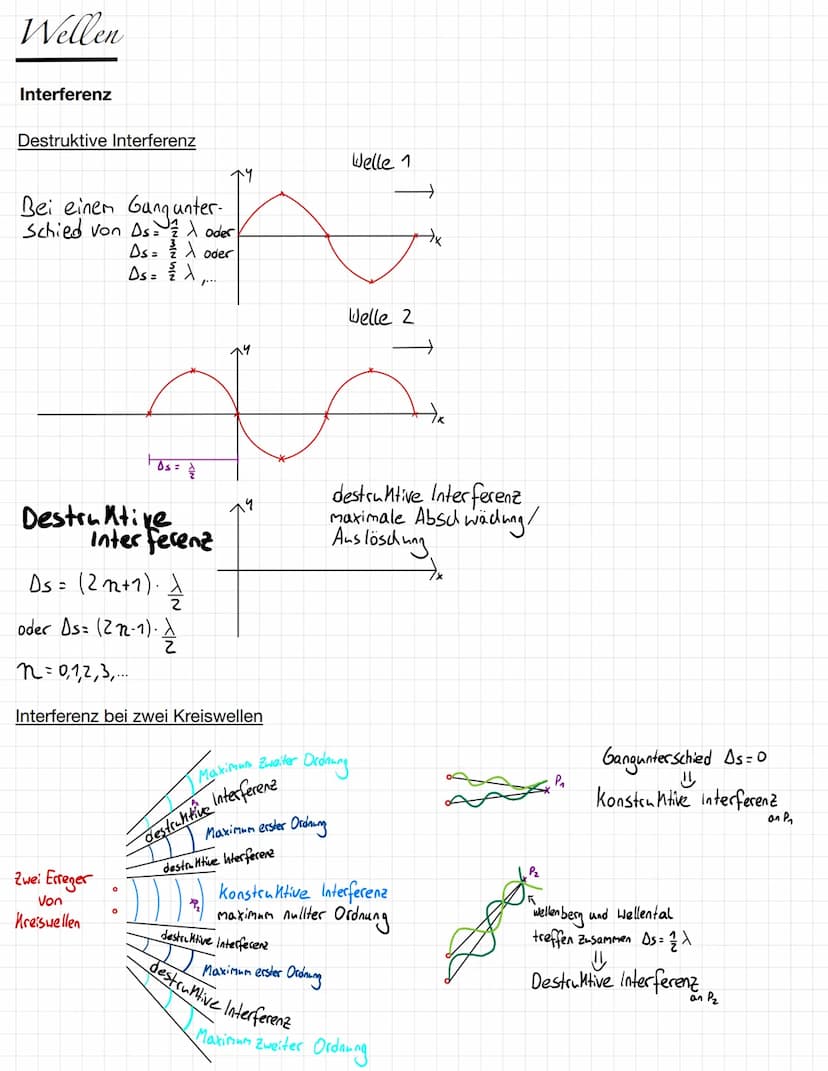 Wellen
Interferenz
Destruktive Interferenz
Welle 1
y
Bei einem Gangunter-
schied von Δs = 1/2 λ oder
x
Δs = 3/2 λ oder
Δs = 5/2 λ ,...
Welle 2
y
x
Δs = λ/2
y
destruktive Interferenz
maximale Abschwächung/
Auslöschung
Destruktive
Interferenz
x
Δs = (2n+1) · λ/2
oder Δs = (2n-1) · λ/2
n = 0,1,2,3,...
Interferenz bei zwei Kreiswellen
Maximum Zweiter Ordnung
destruktive Interferenz
Maximum erster Ordnung
destruktive Interferenz
Zwei Erreger
von
Kreiswellen
Konstruktive Interferenz
maximum nullter Ordnung
destruktive Interferenz
Maximum erster Ordnung
destruktive Interferenz
Maximum Zweiter Ordnung
P1
Gangunterschied Δs = 0
⇓
Konstruktive Interferenz
an P1
P2
Wellenberg und Wellental
treffen zusammen Δs = 1/2 λ
⇓
Destruktive Interferenz
an P2